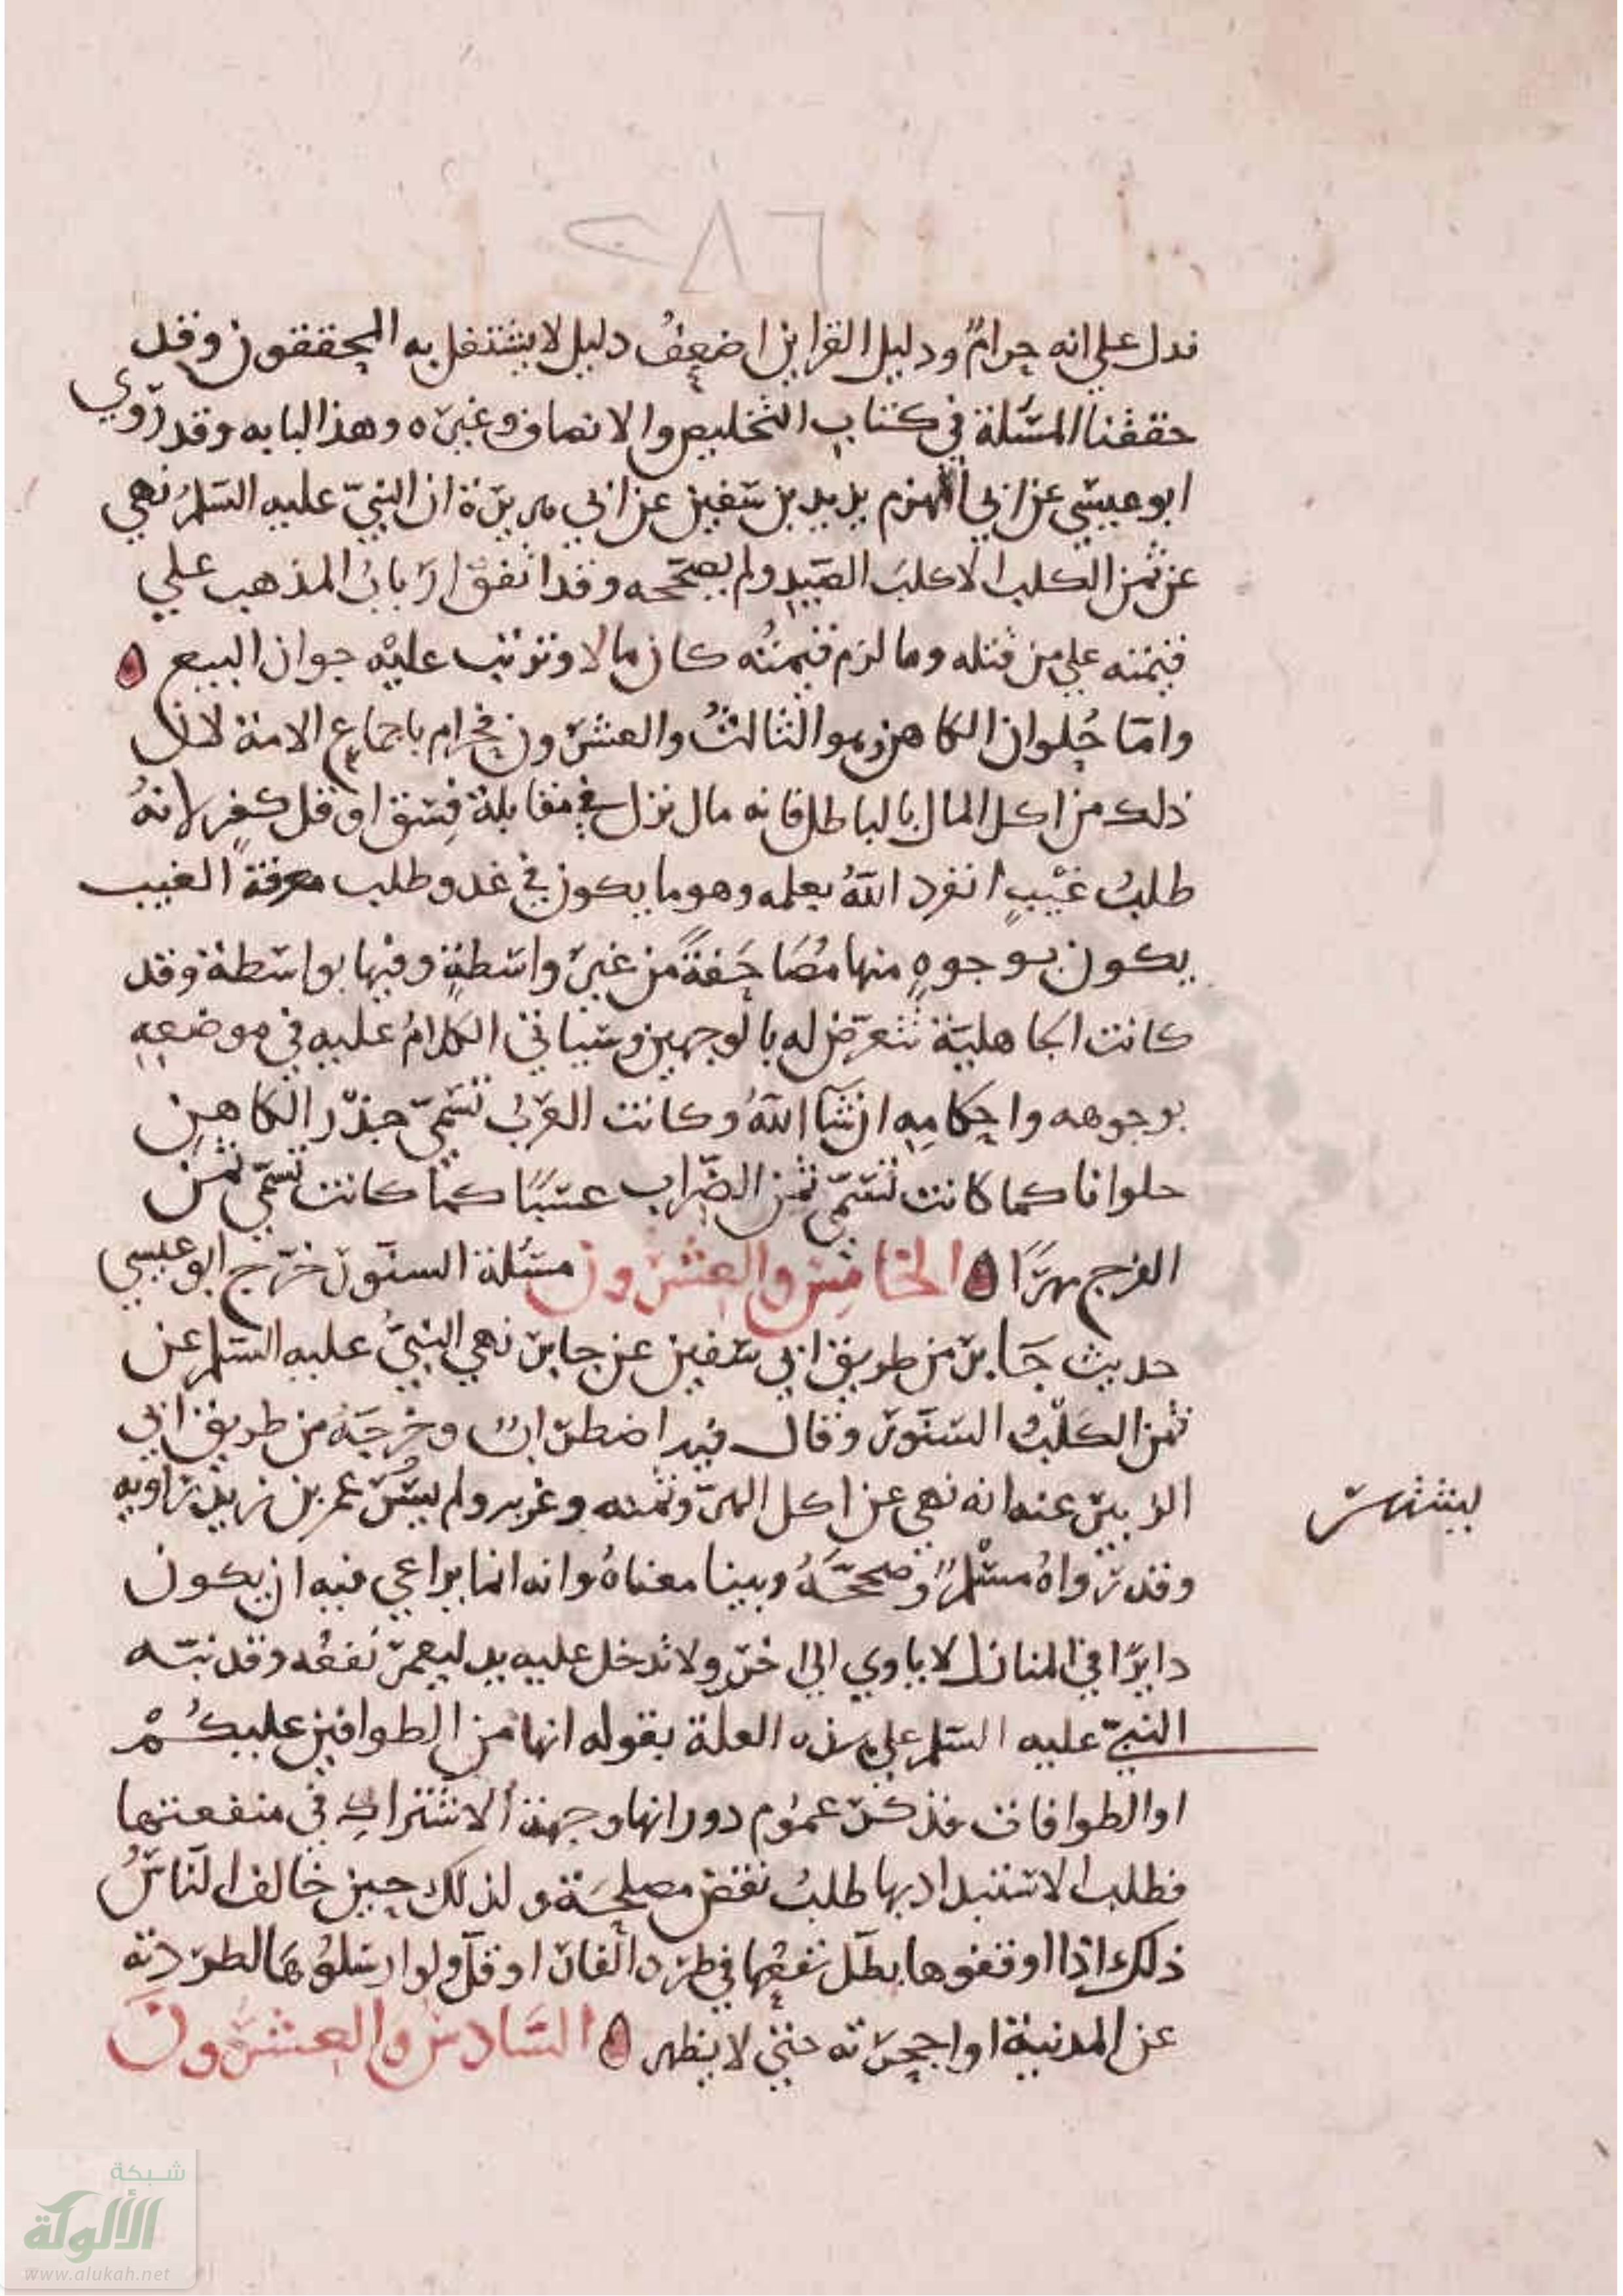 ٢٨٦
فدل على انه حرامٌ ودليل القراين اضعفُ دليل لا يشتغل به المحققون وقد
حققنا المسَٔلة في كتاب التخليص والانصاف وغيره وهذا لبابه وقد رَوي
ابو عيسى عن ابي المهزم يزيد بن سفين عن ابي هريرة ان النبيّ عليه السلمُ نهي
عن ثمن الكلب الا كلبَ الصّيدِ ولم يصحّحه وقد اتفق ارَبابُ المذهب علي
قيمته علي من قتله وما لزم قيمتُه كان مالا وترتب عليْه جواز البيع ٥
وامّا حُلوان الكاهن وهو الثالثُ والعشرون فحرام باجماع الامة لان
ذلك من اكل المال بالباطل فانه مال نزل في مقابلة فِسقٍ او قل كفرٍ لانهُ
طلبُ غيْبٍ انفرد اللهُ بعلمه وهو ما يكون في غد وطلب معرفة الغيب
يكون بوجوهٍ منها مُصَا حَفةً من غير واسطةٍ وفيها بواسطة وقد
كانت الجاهليّة تتعرّض له بالوجهين وسياتي الكلامُ عليه في موضعِهِ
بوجوهه واحكامِهِ ان شآ اللهُ وكانت العرَبُ تسَمّي جذْر الكاهن
حلوانا كما كانت تُسَمّي ثمن الضِّراب عسْبًا كما كانت تسَمّي ثمن
الفرج مهرًا ٥ الخامِسُ والعِشرون مسَٔلة السنّور خرّج ابو عيسي
حديث جَابر من طريق ابي سفين عن جابر نهي النبيُّ عليه السلم عن
ثمن الكلْبُ السنَّور وقال فيه اضطرابٌ وخرجَهُ من طريق ابي
الزبير عنه انه نهي عن اكل الهرّ وثمنه وغربه ولم يسَُّ عمر بن زيد راويه
ليشتهر
وقد رَواهُ مسْلمٌ وصَححّهُ وبينا معناهُ وانه انما يراعي فيه ان يكون
دايرًا في المنازل لا ياوي الي اخرَ ولا تدخل عليه يد ليعمّ نَفعُه وقد نبّه
النبيّ عليه السلم علي هذه العلة بقوله انها من الطوافين عليكُمْ
او الطوافات فذكر عموم دورانها وجهة الاشتراكِ في منفعتها
فطلب الاستبداد بها طلبُ نقض مصلحَة ولذلك حين خالف الناسُ
ذلك اذا اوقفوها بطَل نفعُها في طرد الفار او قلّ ولو ارسَلوُهَا لطرَدته
عن المدينة او اجحرته حتي لا يظهر ٥ السَّادسُ والعِشرُونَ
شبكة
الألوكة
www.alukah.net